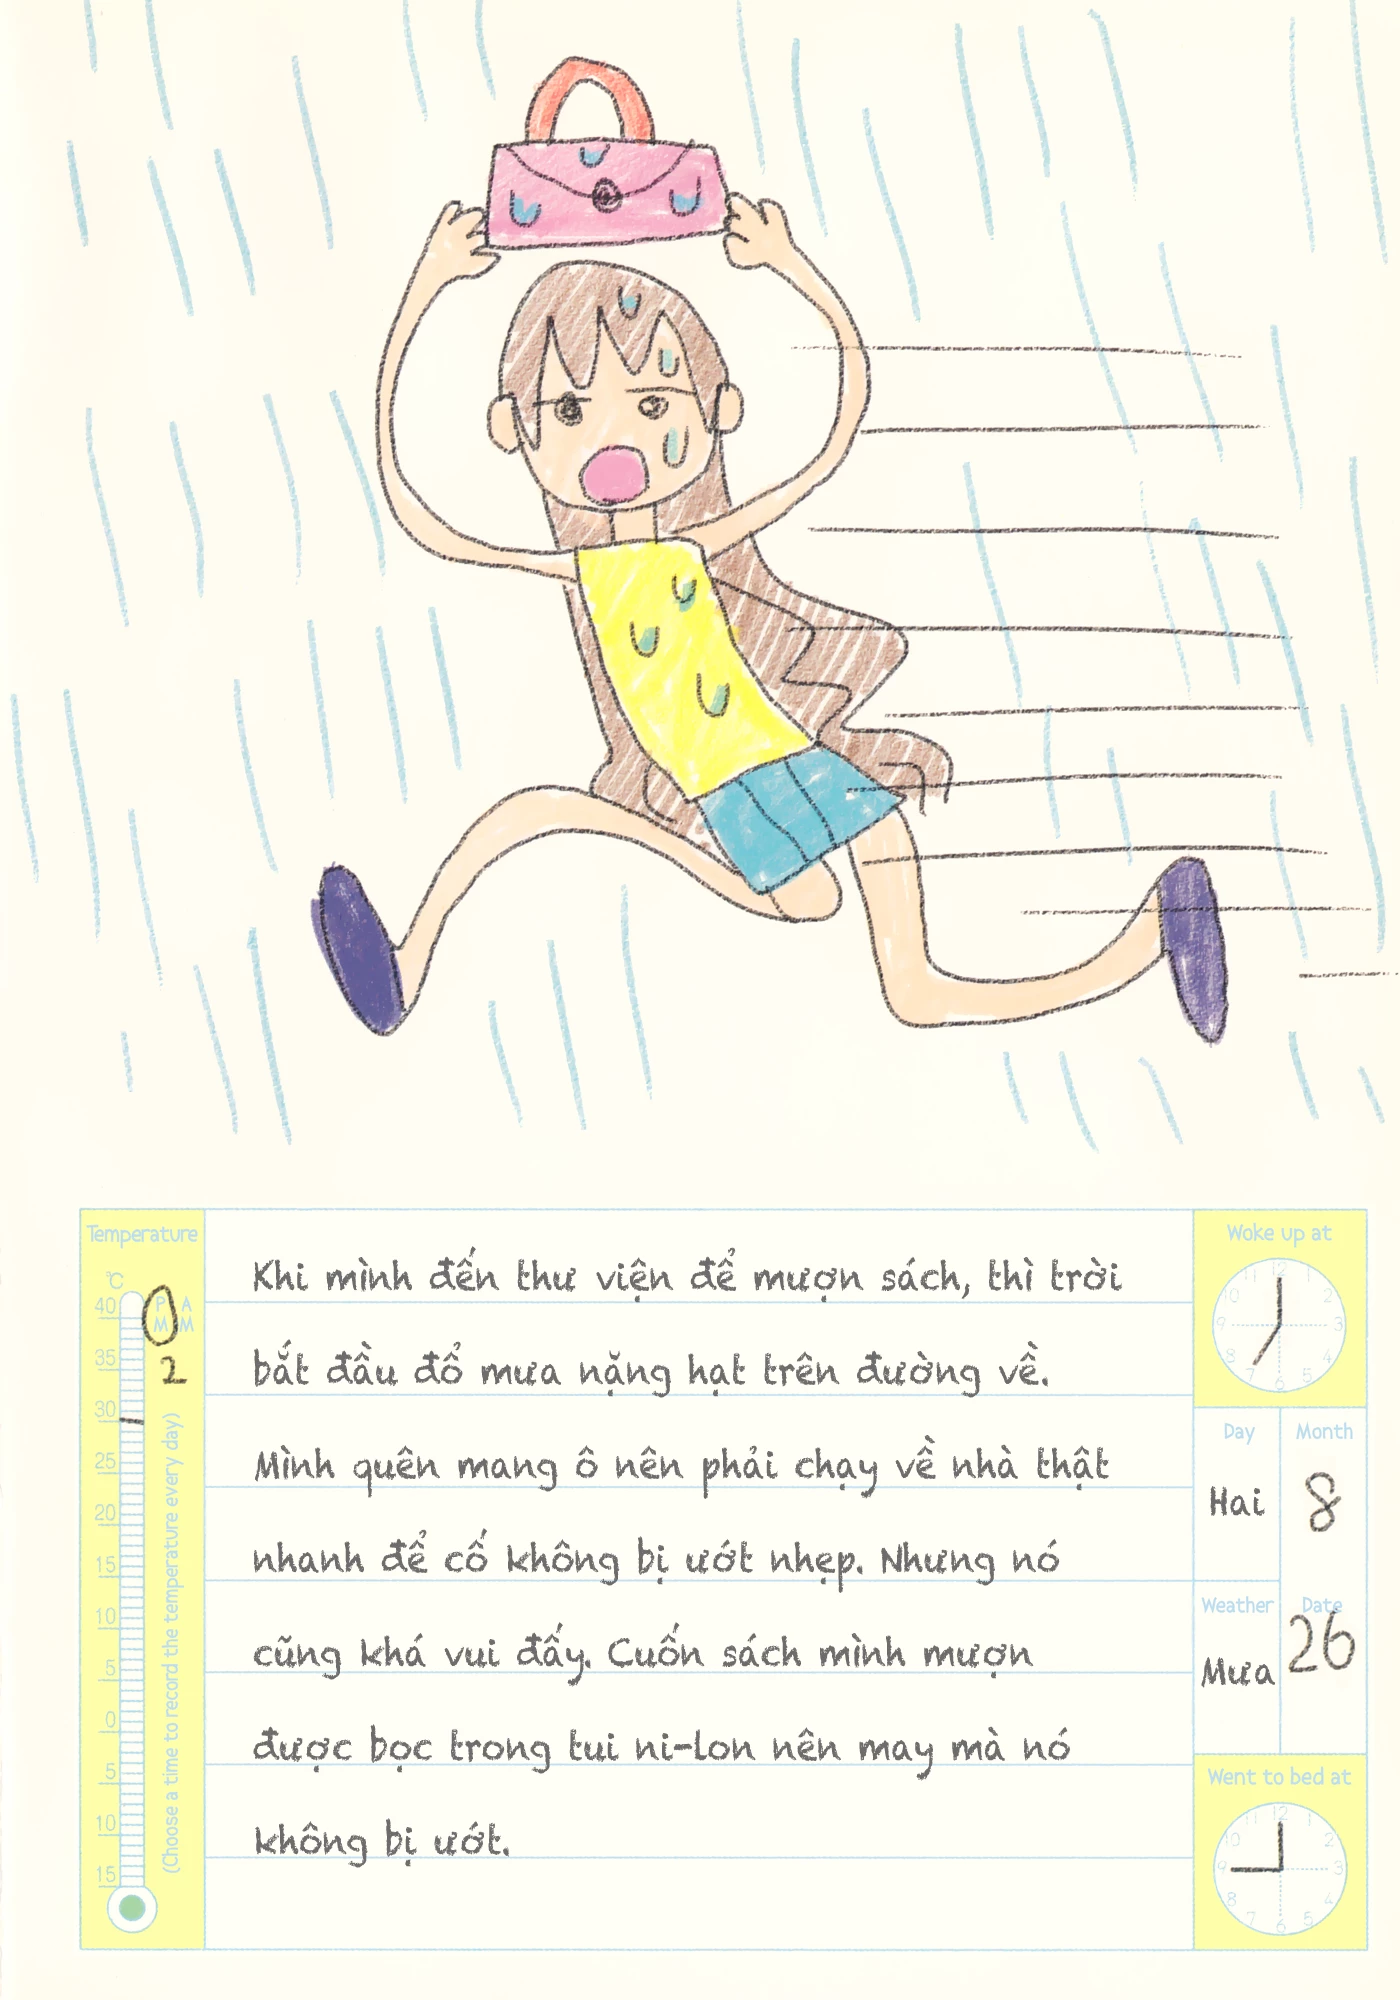 Temperature
℃
40
35
30
25
20
15
10
5
0
5
10
15
PM
AM
2
(Choose a time to record the temperature every day)
Khi mình đến thư viện để mượn sách, thì trời
bắt đầu đổ mưa nặng hạt trên đường về.
Mình quên mang ô nên phải chạy về nhà thật
nhanh để cố không bị ướt nhẹp. Nhưng nó
cũng khá vui đấy. Cuốn sách mình mượn
được bọc trong tui ni-lon nên may mà nó
không bị ướt.
Woke up at
12
1
2
3
4
5
6
7
8
9
10
11
Day
Hai
Month
8
Weather
Mưa
Date
26
Went to bed at
12
1
2
3
4
5
6
7
8
9
10
11